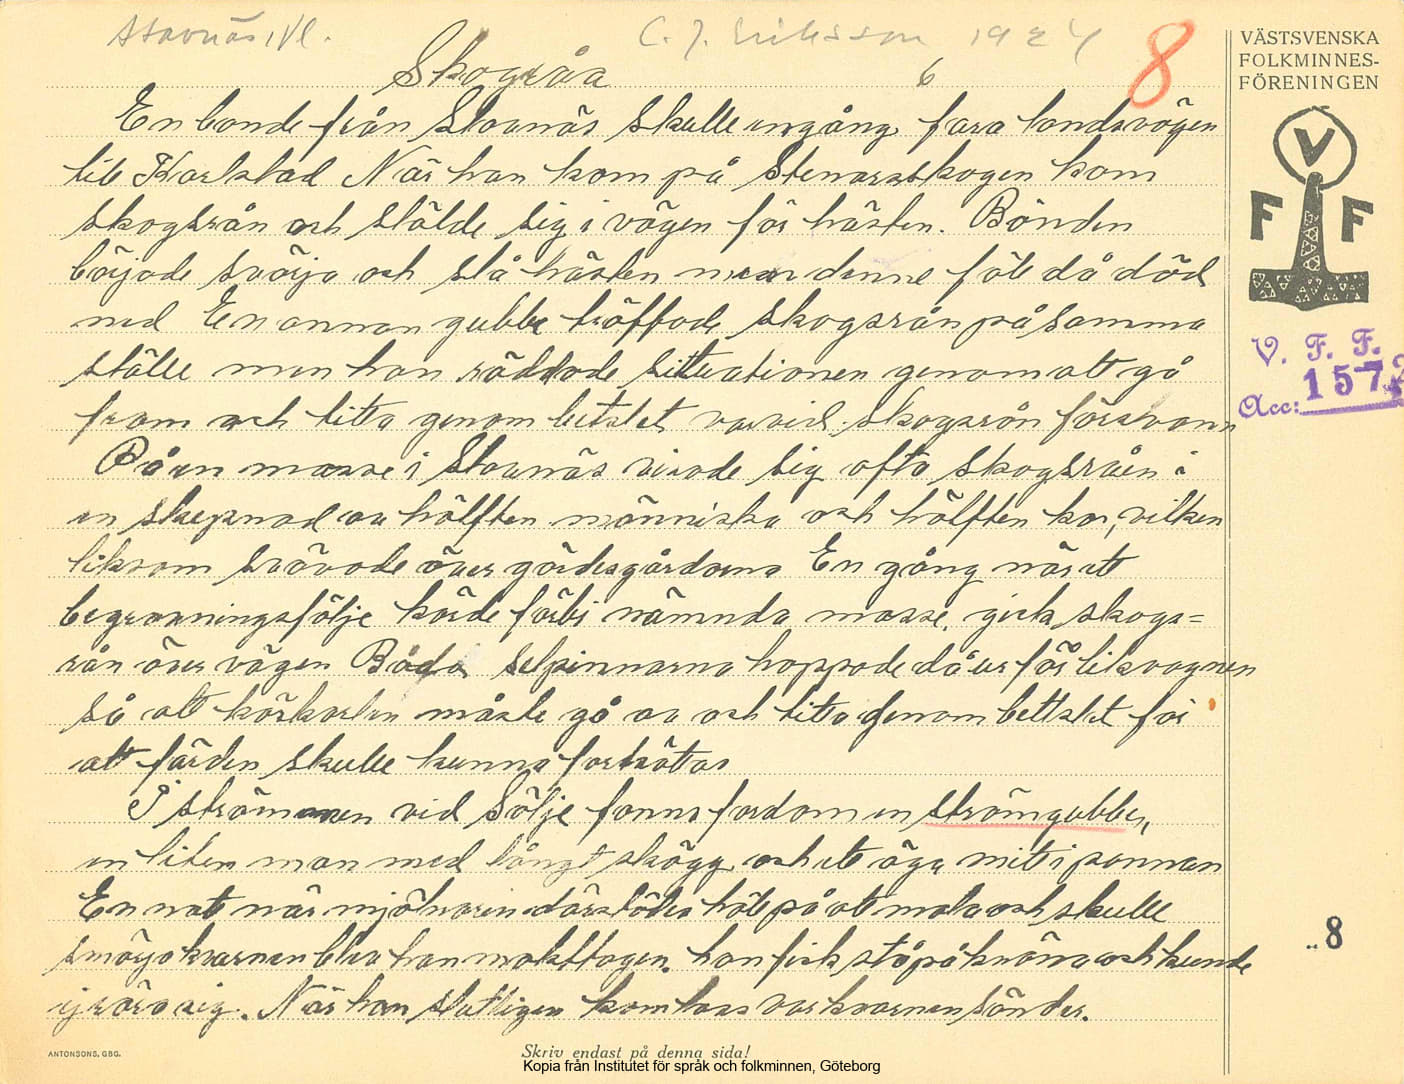 Stavnäs, Vl. C. J. Eriksson 1924
8
VÄSTSVENSKA
FOLKMINNES-
FÖRENINGEN
Skogråa 6
En bonde från Stavnäs skulle engång fara landsvägen
till Karlstad När han kom på Stenarsskogen kom
skogsrån och stälde sig i vägen för hästen. Bonden
började svärja och slå hästen men denne föll då död
ned En annan gubbe träffade skogsrån på samma
ställe men han räddade sittuationen genom att gå
fram och titta genom betslet varvid skogsrån försvann
På en mosse i Stavnäs visade sig ofta skogsråen i
en skepnad av hälften människa och hälften ko, vilken
liksom svävade över gärdesgårdarna En gång när ett
begravningsfölje körde förbi nämnda mosse, gick skogs=
rån över vägen Båda selpinnarna hoppade då ur för likvagnen
så att körkarlen måste gå av och titta genom bettslet för
att färden skulle kunna fortsättas
I strömmen vid Sälje fanns fordom en strömgubbe,
en liten man med långt skägg och ett öga mitt i pannan
En natt när mjölnaren därstädes höll på att mala och skulle
smörja kvarnen blev han makttagen. han fick stå på knäna och kunde
ej röra sig. När han slutligen kom loss var kvarnen sönder.
V
F F
V. F. F.
Acc: 1572
.. 8
ANTONSONS, GBG.
Skriv endast på denna sida!
Kopia från Institutet för språk och folkminnen, Göteborg